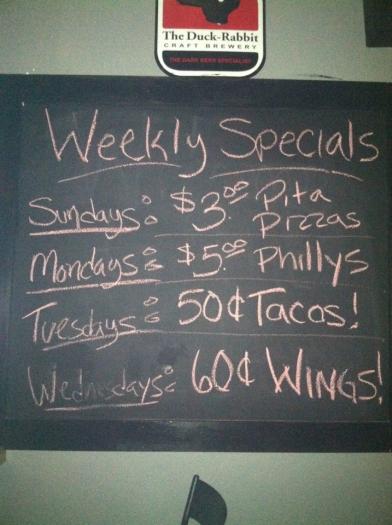 The Duck-Rabbit
CRAFT BREWERY
THE DARK BEER SPECIALIST
Weekly Specials
Sundays: $3.00 Pita Pizzas
Mondays: $5.00 Phillys
Tuesdays: 50¢ Tacos!
Wednesdays: 60¢ WINGS!